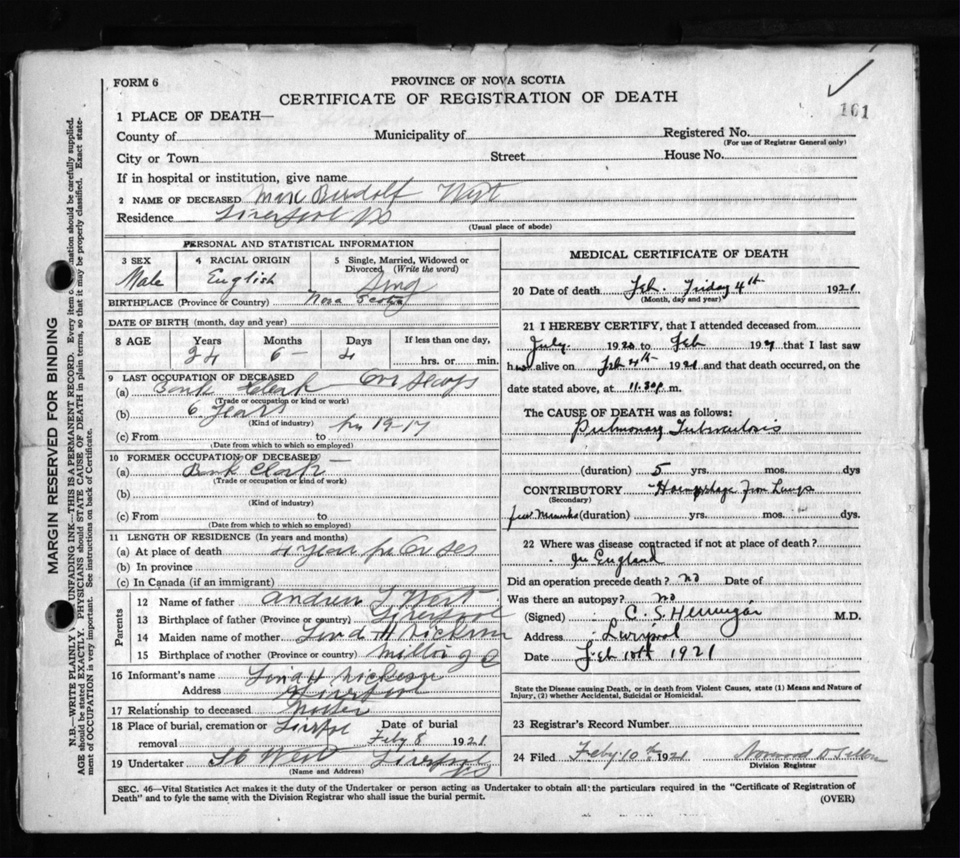 101
FORM 6
PROVINCE OF NOVA SCOTIA
CERTIFICATE OF REGISTRATION OF DEATH
1 PLACE OF DEATH—
County of Municipality of Registered No.
(For use of Registrar General only)
City or Town Street House No.
If in hospital or institution, give name
2 NAME OF DECEASED West
Residence Liverpool NS
(Usual place of abode)
PERSONAL AND STATISTICAL INFORMATION
3 SEX 4 RACIAL ORIGIN 5 Single, Married, Widowed or Divorced (Write the word)
Male English Sing
BIRTHPLACE (Province or Country) Nova Scotia
DATE OF BIRTH (month, day and year)
8 AGE Years Months Days If less than one day,
24 6 4 hrs. or min.
9 LAST OCCUPATION OF DECEASED
(a) Bank Clerk
(Trade or occupation or kind or work)
(b) 6 years
(Kind of industry)
(c) From to 1917
(Date from which to which so employed)
10 FORMER OCCUPATION OF DECEASED—
(a) Bank Clark
(Trade or occupation or kind of work)
(b)
(Kind of industry)
(c) From to
(Date from which to which so employed)
11 LENGTH OF RESIDENCE (In years and months)
(a) At place of death 4 year
(b) In province
(c) In Canada (if an immigrant)
Parents
12 Name of father Andrew L West
13 Birthplace of father (Province or country) Liverpool
14 Maiden name of mother H Nickerson
15 Birthplace of mother (Province or country)
16 Informant's name H Nickerson
Address Liverpool
17 Relationship to deceased Mother
18 Place of burial, cremation or removal Date of burial
Feby 8 1921.
19 Undertaker West Liverpool NS
(Name and Address)
MEDICAL CERTIFICATE OF DEATH
20 Date of death Feb. Friday 4th 1921
(Month, day and year)
21 I HEREBY CERTIFY, that I attended deceased from
July 1920 to Feb 1921 that I last saw
h alive on Feb 4th 1921 and that death occurred, on the
date stated above, at 11.30 p. m.
The CAUSE OF DEATH was as follows:
Pulmonary Tuberculosis
(duration) 5 yrs. mos. dys
CONTRIBUTORY Haemorrhage From Lungs
(Secondary)
few (duration) yrs. mos. dys.
22 Where was disease contracted if not at place of death?
In England
Did an operation precede death? no Date of
Was there an autopsy? no
(Signed) C. S. Hennigar M.D.
Address Liverpool
Date Feb 10th 1921
State the Disease causing Death, or in death from Violent Causes, state (1) Means and Nature of
Injury, (2) whether Accidental, Suicidal or Homicidal.
23 Registrar's Record Number
24 Filed Feby 10th 1921
Division Registrar
SEC. 46—Vital Statistics Act makes it the duty of the Undertaker or person acting as Undertaker to obtain all the particulars required in the "Certificate of Registration of
Death" and to fyle the same with the Division Registrar who shall issue the burial permit.
(OVER)
MARGIN RESERVED FOR BINDING